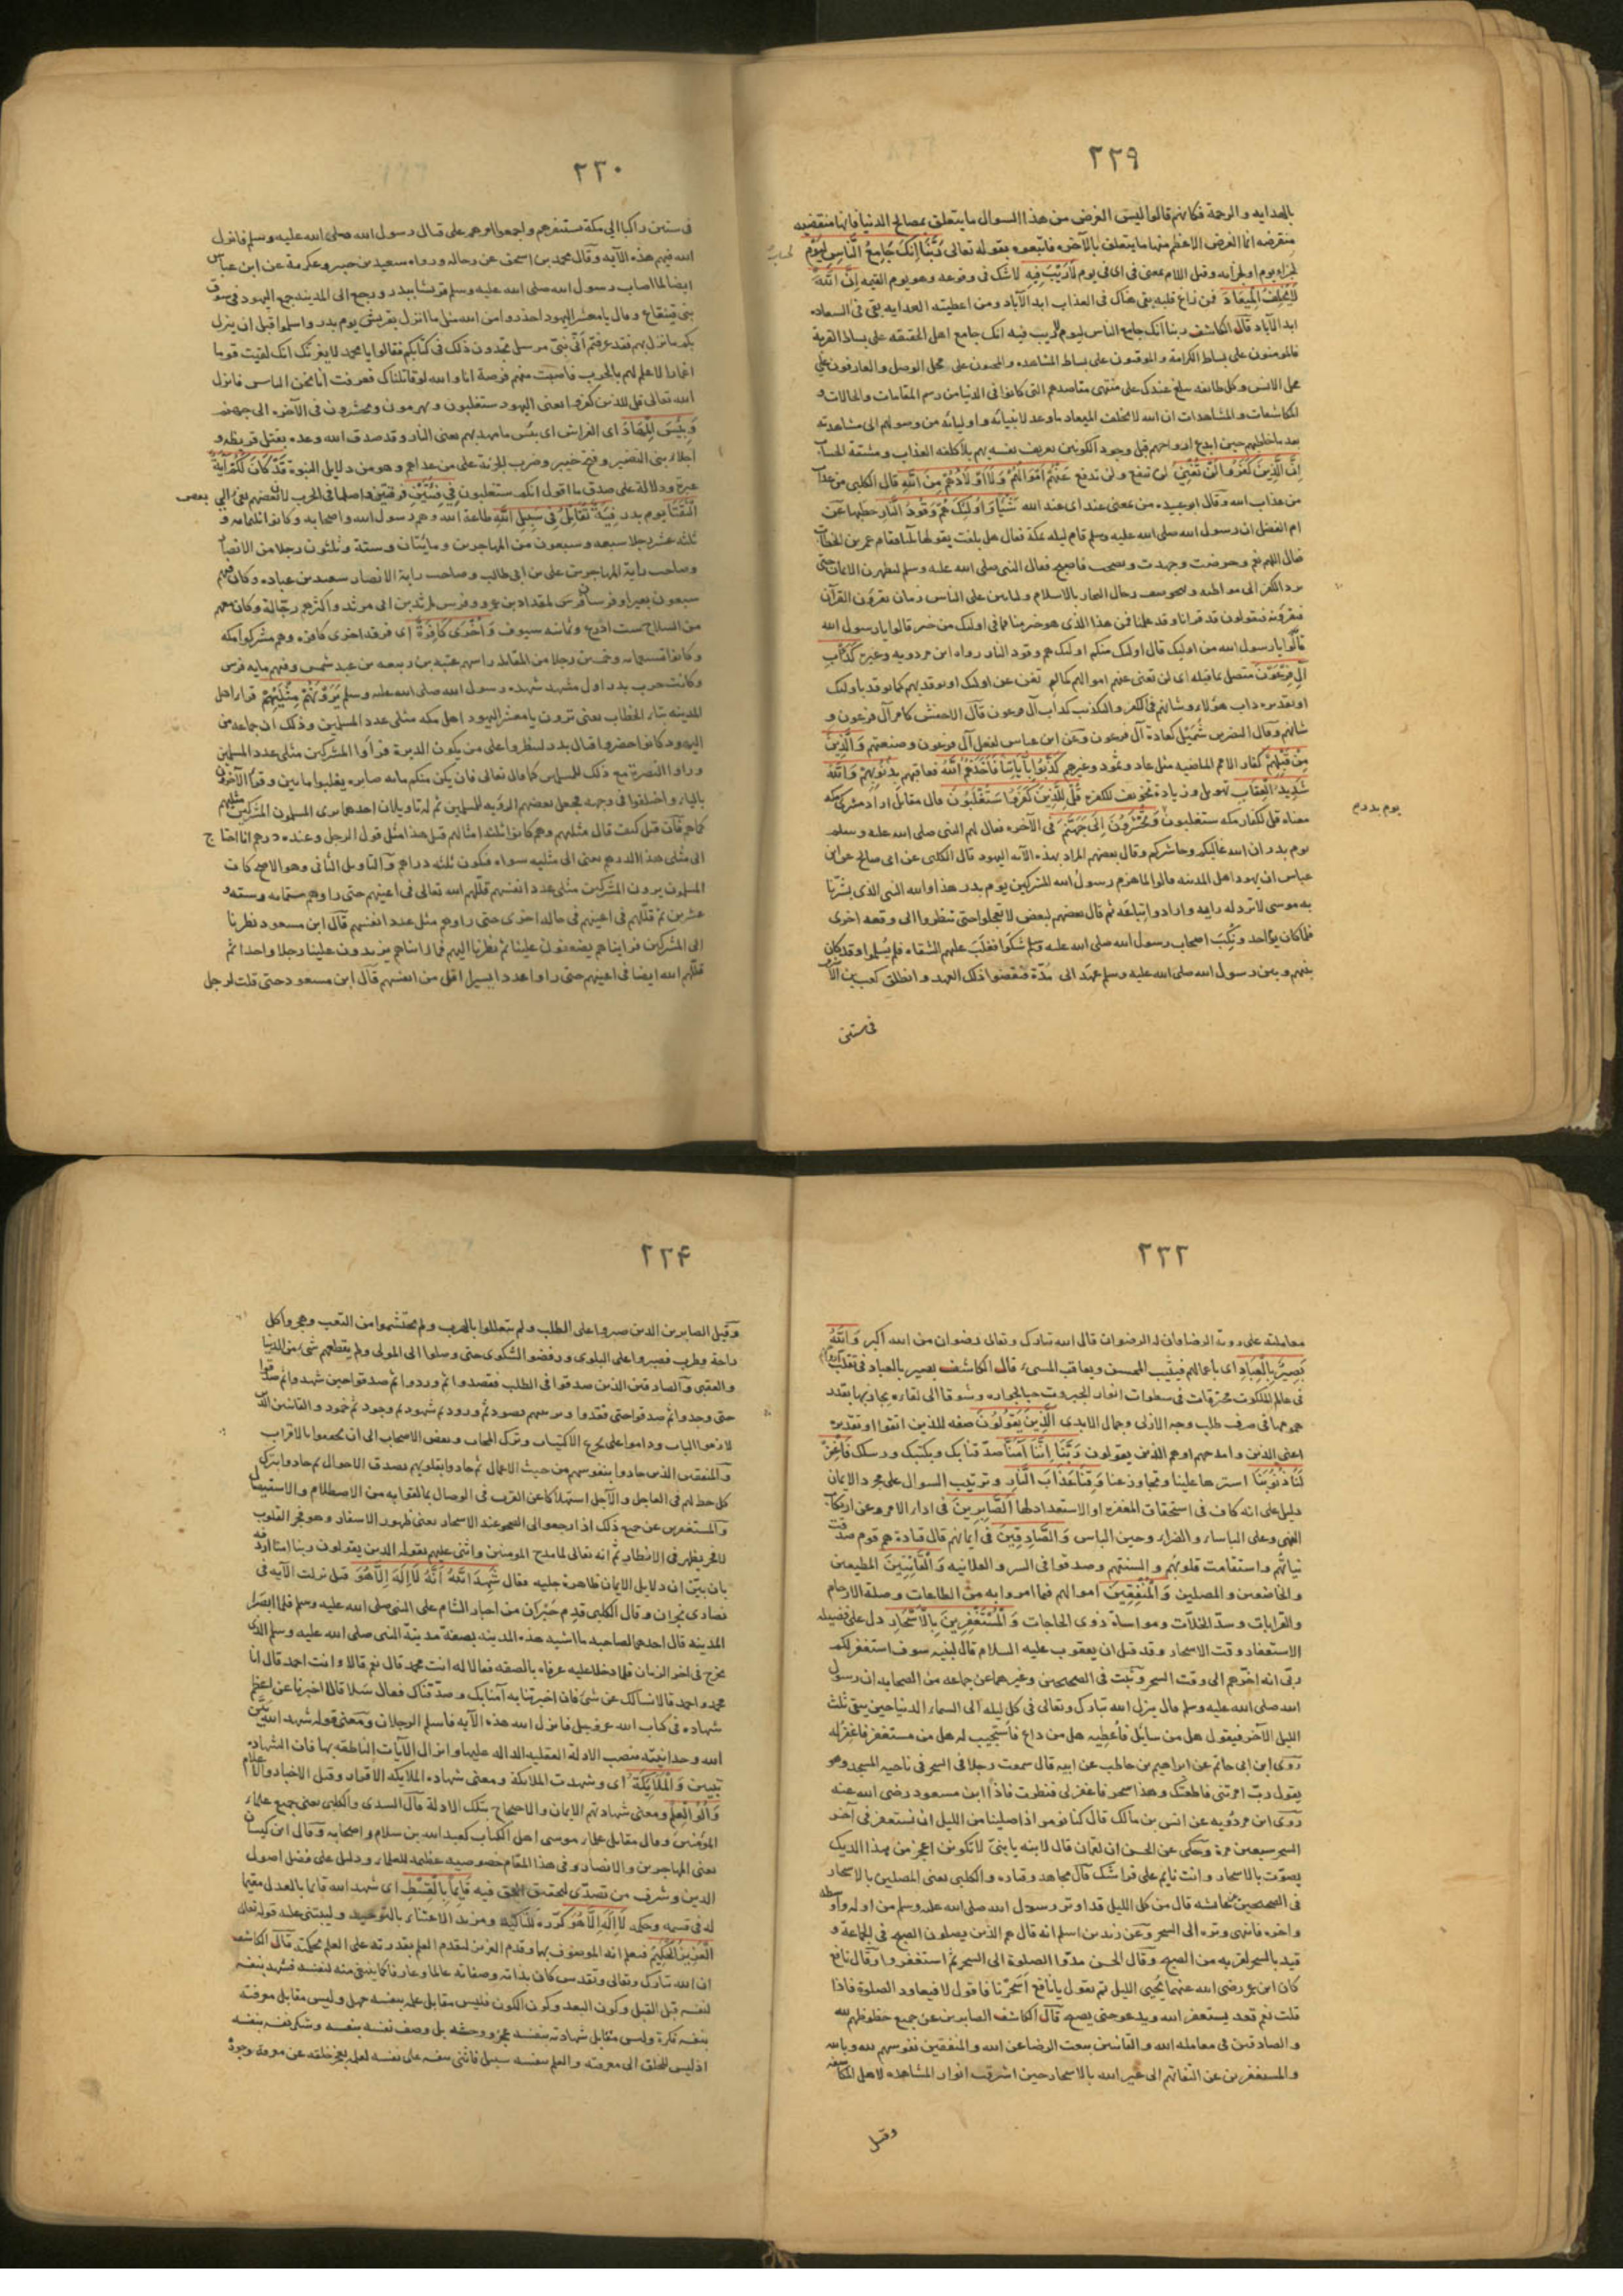 ٢٢٩
بالهدايه والرحمة فكانهم قالوا ليس الغرض من هذا السوال ما يتعلق بمصالح الدنيا فانها منقضيه
منقرضه انما الغرض الاعظم منها ما يتعلق بالآخره فاتبعوه بقوله تعالى رَبَّنَا اِنَّكَ جَامِعُ النَّاسِ لِيَوْمٍ
لجزاء يوم او لجزائه وقيل اللام بمعنى فى اى فى يوم لَارَيْبَ فِيهِ لا شك فى وقوعه وهو يوم القيمه اِنَّ اللّٰهَ
لَايُخْلِفُ الْمِيعَادَ فمن زاغ قلبه بقى هناك فى العذاب ابد الآباد ومن اعطيته الهدايه بقى فى السعاده
ابد الآباد قال الكاشف ربنا انك جامع الناس ليوم لاريب فيه انك جامع اهل الحقيقه على بساط القربة
فالمومنون على بساط الكرامة والموقنون على بساط المشاهده والمحبون على محل الوصل والعارفون على
محل الانس وكل طائفه عندك على منتهى مقاصدهم التى كانوا فى الدنيا من رسم المقامات والحالات و
المكاشفات والمشاهدات ان الله لا يخلف الميعاد ما وعد لانبيائه واوليائه من وصولهم الى مشاهدته
بعد ما خاطبهم حين ابدع ارواحهم قبل وجود الكونين بتعريف نفسه لهم بلا كلفة العذاب ومشقة الحساب
اِنَّ الَّذِينَ كَفَرُوا لَنْ تُغْنِيَ لن تنفع ولن تدفع عَنْهُمْ اَمْوَالُهُمْ وَلَا اَوْلَادُهُمْ مِنَ اللّٰهِ قال الكلبى من عذاب
من عذاب الله وقال ابو عبيده من بمعنى عند اى عند الله شَيْئًا وَاُولٰئِكَ هُمْ وَقُودُ النَّارِ حطبها عن
ام الفضل ان رسول الله صلى الله عليه وسلم قام ليله بمكة فقال هل بلغت يقولها ثلثا فقام عمر بن الخطاب
فقال اللهم نعم وحرصت وجهدت ونصحت فاصبح فقال النبى صلى الله عليه وسلم ليظهرن الايمان حتى
يرد الكفر الى مواطنه رجال البحار بالاسلام ولياتين على الناس زمان يقرؤن القرآن
فيقرؤنه فيقولون قد قرانا وقد علمنا فمن هذا الذى هو خير منا فما فى اولئك من خير قالوا يا رسول الله
قالوا يا رسول الله من اوليك قال اولئك منكم اولئك هم وقود النار رواه ابن مردويه وغيره كَدَاْبِ
اٰلِ فِرْعَوْنَ متصل بما قبله اى لن تغنى عنهم اموالهم كما لم تغن عن اولئك او توقد بهم كما توقد باولئك
او تقديره داب هؤلاء وشانهم فى الكفر والتكذيب كداب آل فرعون قال الاخفش كامر آل فرعون و
شانهم وقال النضر بن شُمَيْل كعادة آل فرعون وعن ابن عباس كفعل آل فرعون وصنعتهم وَالَّذِينَ
مِنْ قَبْلِهِمْ كفار الامم الماضيه مثل عاد وثمود وغيرهم كَذَّبُوا بِاٰيَاتِنَا فَاَخَذَهُمُ اللّٰهُ فعاقبهم بِذُنُوبِهِمْ وَاللّٰهُ
شَدِيدُ الْعِقَابِ تهويل وزيادة تخويف للكفره قُلْ لِلَّذِينَ كَفَرُوا سَتُغْلَبُونَ قال مقاتل اراد مشركى مكه
معناه قل لكفار مكه ستغلبون وَتُحْشَرُونَ اِلٰى جَهَنَّمَ فى الآخره فقال لهم النبى صلى الله عليه وسلم
يوم بدر ان الله غالبكم وحاشركم وقال بعضهم المراد بهذه الآيه اليهود قال الكلبى عن ابى صالح عن ابن
عباس ان يهود اهل المدينه قالوا لما هزم رسول الله المشركين يوم بدر هذا والله النبى الذى بشّرنا
به موسى لا ترد له رايه وارادوا اتباعه ثم قال بعضهم لبعض لا تعجلوا حتى تنظروا الى وقعه اخرى
فلما كان يوم احد ونُكِبَ اصحاب رسول الله صلى الله عليه وسلم شكوا فغلب عليهم الشقاء فلم يُسلموا وقد كان
بينهم وبين رسول الله صلى الله عليه وسلم عهد الى مُدّة فنقضوا ذلك العهد وانطلق كعب بن الاشرف
فى ستين
يوم بدرم
٢٣٠
فى ستين راكبا الى مكة يستنفرهم واجمعوا امرهم على قتال رسول الله صلى الله عليه وسلم فانزل
الله فيهم هذه الآيه وقال محمد بن اسحق عن رجاله ورواه سعيد بن جبير وعكرمة عن ابن عباس
ايضا لما اصاب رسول الله صلى الله عليه وسلم قريشا ببدر ورجع الى المدينه جمع اليهود فى سوق
بنى قينقاع وقال يا معشر اليهود احذروا من الله مثل ما انزل بقريش يوم بدر واسلموا قبل ان ينزل
بكم ما نزل بهم فقد عرفتم أنّى نبىّ مرسل تجدون ذلك فى كتابكم فقالوا يا محمد لا يغرنّك انك لقيت قوما
اغمارا لا علم لهم بالحرب فاصبت منهم فرصة انا والله لو قاتلناك لعرفت انا نحن الناس فانزل
الله تعالى قل للذين كفروا يعنى اليهود ستغلبون وتهزمون وتحشرون فى الآخره الى جهنم
وَبِئْسَ الْمِهَادُ اى الفراش اى بئس ما مهد لهم يعنى النار وقد صدق الله وعده بقتل قريظه و
اجلاء بنى النضير وفتح خيبر وضرب الجزية على من عداهم وهو من دلايل النبوة قَدْ كَانَ لَكُمْ اٰيَةٌ
عبرة ودلالة على صدق ما اقول انكم ستغلبون فِي فِئَتَيْنِ فرقتين واصلها فى الحرب لان بعضهم يفىء الى بعض
الْتَقَتَا يوم بدر فِئَةٌ تُقَاتِلُ فِي سَبِيلِ اللّٰهِ طاعة الله وهم رسول الله واصحابه وكانوا ثلثمائه و
ثلثه عشر رجلا سبعه وسبعون من المهاجرين ومايتان وستة وثلثون رجلا من الانصار
وصاحب راية المهاجرين على بن ابى طالب وصاحب راية الانصار سعد بن عباده وكان فيهم
سبعون بعيرا وفرسان فرس لمقداد بن عمرو وفرس لمرثد بن ابى مرثد واكثرهم رجّالة وكان معهم
من السلاح ست ادرع وثمانيه سيوف وَاُخْرٰى كَافِرَةٌ اى فرقه اخرى كافره وهم مشركوا مكه
وكانوا تسعمايه وخمسين رجلا من المقاتله راسهم عتبه بن ربيعه بن عبد شمس وفيهم مايه فرس
وكانت حرب بدر اول مشهد شهده رسول الله صلى الله عليه وسلم يَرَوْنَهُمْ مِثْلَيْهِمْ قراء اهل
المدينه بتاء الخطاب يعنى ترون يا معشر اليهود اهل مكه مثلى عدد المسلمين وذلك ان جماعه من
اليهود كانوا حضروا قتال بدر لينظروا على من يكون الدبرة فرأوا المشركين مثلى عدد المسلمين
وراوا النصرة مع ذلك للمسلمين كما قال تعالى فان يكن منكم مائه صابره يغلبوا مايتين وقرأ الآخرون
بالياء واختلفوا فى وجهه فجعل بعضهم الرؤيه للمسلمين ثم له تاويلان احدهما يرى المسلمون المشركين مثليهم
كما هم فان قيل كيف قال مثليهم وهم كانوا ثلثه امثالهم قيل هذا مثل قول الرجل وعنده درهم انا احتاج
الى مثلى هذا الدرهم يعنى الى مثليه سواه فيكون ثلثه دراهم والتاويل الثانى وهو الاصح كان
المسلمون يرون المشركين مثلى عدد انفسهم قلّلهم الله تعالى فى اعينهم حتى راوهم ستمايه وسته و
عشرين ثم قلّلهم فى اعينهم فى حاله اخرى حتى راوهم مثل عدد انفسهم قال ابن مسعود نظرنا
الى المشركين فرايناهم يضعفون علينا ثم نظرنا اليهم فما رايناهم يزيدون علينا رجلا واحدا ثم
قلّلهم الله ايضا فى اعينهم حتى راوا عددا يسيرا اقل من انفسهم قال ابن مسعود حتى قلت لرجل
٢٣٣
معاملته على روية الرضا وان له الرضوان قال الله تبارك وتعالى رضوان من الله اكبر وَاللّٰهُ
بَصِيرٌ بِالْعِبَادِ اى باعمالهم فيثيب المحسن ويعاقب المسىء قال الكاشف بصير بالعباد فى تقلب
فى عالم الملكوت محترقات فى سطوات انوار الجبروت حبا لجواره وشوقا الى لقاءه يجازيها بقدر
همومها فى صرف طلب وجه الازلى وجمال الابدى اَلَّذِينَ يَقُولُونَ صفه للذين اتقوا او تقديره
اعنى الذين وامدحهم او هم الذين يقولون رَبَّنَا اِنَّنَا اٰمَنَّا صدّقنا بك وبكتبك ورسلك فَاغْفِرْ
لَنَا ذُنُوبَنَا استرها علينا وتجاوز عنا وَقِنَا عَذَابَ النَّارِ وترتيب السوال على مجرد الايمان
دليل على انه كاف فى استحقاق المغفرة او الاستعداد لها اَلصَّابِرِينَ فى اداء الامر وعن ارتكاب
النهى وعلى الباساء والضراء وحين الباس وَالصَّادِقِينَ فى ايمانهم قال قتادة هم قوم صدقت
نياتهم واستقامت قلوبهم والسنتهم وصدقوا فى السر والعلانيه وَالْقَانِتِينَ المطيعين
والخاضعين والمصلين وَالْمُنْفِقِينَ اموالهم فيما امروا به من الطاعات وصلة الارحام
والقرابات وسدّ الخلّات ومواساة ذوى الحاجات وَالْمُسْتَغْفِرِينَ بِالْاَسْحَارِ دل على فضيله
الاستغفار وقت الاسحار وقد قيل ان يعقوب عليه السلام قال لبنيه سوف استغفر لكم
ربى انه اخرّهم الى وقت السحر وثبت فى الصحيحين وغيرهما عن جماعه من الصحابه ان رسول
الله صلى الله عليه وسلم قال ينزل الله تبارك وتعالى فى كل ليله الى السماء الدنيا حين يبقى ثلث
الليل الآخر فيقول هل من سائل فأعطيه هل من داع فأستجيب له هل من مستغفر فاغفر له
روى ابن ابى حاتم عن ابراهيم بن حاطب عن ابيه قال سمعت رجلا فى السحر فى ناحيه المسجد وهو
يقول ربّ امرتنى فاطعتك وهذا سحر فاغفر لى فنظرت فاذا ابن مسعود رضى الله عنه
روى ابن مردويه عن انس بن مالك قال كنا نومر اذا صلينا من الليل ان نستغفر فى آخر
السحر سبعين مرة وحكى عن الحسن ان لقمان قال لابنه يا بنىّ لا تكونن اعجز من هذا الديك
يصوّت بالاسحار وانت نايم على فراشك قال مجاهد وقتاده والكلبى يعنى المصلين بالاسحار
فى الصحيحين عن عائشه قال من كل الليل قد اوتر رسول الله صلى الله عليه وسلم من اوله واوسطه
واخره فانتهى وتره الى السحر وعن زيد بن اسلم انه قال هم الذين يصلون الصبح فى الجماعة و
قيد بالسحر لقربه من الصبح وقال الحسن مدّوا الصلوة الى السحر ثم استغفروا وقال نافع
كان ابن عمر رضى الله عنهما يُحيى الليل ثم يقول يا نافع اَسحَرْنا فاقول لا فيعاود الصلوة فاذا
قلت نعم قعد يستغفر الله ويدعو حتى يصبح قال الكاشف الصابرين عن جميع حظوظهم لله
والصادقين فى معامله الله والقانتين بنعت الرضا عن الله والمنفقين نفوسهم لله وبالله
والمستغفرين عن التفاتهم الى غير الله بالاسحار حين اشرقت انوار المشاهده لاهل المكاشفه
وقيل
٢٣۴
وقيل الصابرين الذين صبروا على الطلب ولم يتعللوا بالهرب ولم يحتشموا من التعب وهجروا كل
راحة وطرب فصبروا على البلوى ورفضوا الشكوى حتى وصلوا الى المولى ولم يقطعهم شىء من الدنيا
والعقبى والصادقين الذين صدقوا فى الطلب فقصدوا ثم وردوا ثم صدقوا حين شهدوا ثم صدقوا
حتى وجدوا ثم صدقوا حتى فقدوا وترتيبهم قصود ثم ورود ثم شهود ثم وجود ثم خمود والقانتين الذين
لازموا الباب وداموا على تجرع الاكتياب وترك المحاب ورفض الاصحاب الى ان تحققوا بالاقراب
والمنفقين الذين جادوا بنفوسهم من حيث الاعمال ثم جادوا بقلوبهم بصدق الاحوال ثم جادوا بترك
كل حظ لهم فى العاجل والآجل استهلاكا عن القرب فى الوصال بما لقوا به من الاصطلام والاستيصال
والمستغفرين عن جميع ذلك اذا رجعوا الى الصحو عند الاسحار يعنى ظهور الاسفار وهو فجر القلوب
لا فجر يظهر فى الاقطار ثم انه تعالى لما مدح المومنين واثنى عليهم بقوله الذين يقولون ربنا اننا امنا اردفه
بان بيّن ان دلايل الايمان ظاهرة جليه فقال شَهِدَ اللّٰهُ اَنَّهُ لَا اِلٰهَ اِلَّا هُوَ قيل نزلت الآيه فى
نصارى نجران وقال الكلبى قدم حَبْران من احبار الشام على النبى صلى الله عليه وسلم فلما ابصرا
المدينه قال احدهما لصاحبه ما اشبه هذه المدينه بصفة مدينة النبى صلى الله عليه وسلم الذى
يخرج فى اخر الزمان فلما دخلا عليه عرفاه بالصفه فقالا له انت محمد قال نعم قالا وانت احمد قال انا
محمد واحمد قالا نسألك عن شىء فان اخبرتنا به آمنا بك وصدّقناك فقال سَلا قالا اخبرنا عن اعظم
شهاده فى كتاب الله عز وجل فانزل الله هذه الآيه فاسلم الرجلان ومعنى قوله شهد الله بيّن
الله وحدانيته بنصب الادلة العقليه الداله عليها وانزال الآيات الناطقه بها فان الشهاده
تبيين وَالْمَلَائِكَةُ اى وشهدت الملائكة ومعنى شهاده الملايكه الاقرار وقيل الاخبار والاعلام
وَاُولُوا الْعِلْمِ ومعنى شهادتهم الايمان والاحتجاج بتلك الادلة قال السدى والكلبى يعنى جميع علماء
المؤمنين وقال مقاتل علماء مومنى اهل الكتاب كعبد الله بن سلام واصحابه وقال ابن كيسان
يعنى المهاجرين والانصار وفى هذا المقام خصوصيه عظيمه للعلماء ودليل على فضل اصول
الدين وشرف من تصدّى لتحقيق الحق فيه قَائِمًا بِالْقِسْطِ اى شهد الله قائما بالعدل مقيما
له فى قسمه وحكمه لَا اِلٰهَ اِلَّا هُوَ كرّره للتاكيد ومزيد الاعتناء بالتوحيد وليبتنى عليه قوله تعالى
الْعَزِيزُ الْحَكِيمُ فيعلم انه الموصوف بهما وقدم العزيز لتقدم العلم بقدرته على العلم بحكمته قال الكاشف
ان الله تبارك وتعالى وتقدس كان بذاته وصفاته عالما وعارفا كما ينبغى منه لنفسه فشهد بنفسه
لنفسه قبل القبل وكون البعد وكون الكون فليس مقابل علمه بنفسه جهل وليس مقابل معرفته
بنفسه نكرة وليس مقابل شهادته بنفسه عجز ووحشه بل وصف نفسه بنفسه وشكر نفسه بنفسه
اذ ليس للخلق الى معرفته والعلم بنفسه سبيل فاثنى بنفسه على نفسه لعلمه بعجز خلقه عن معرفة وجوده